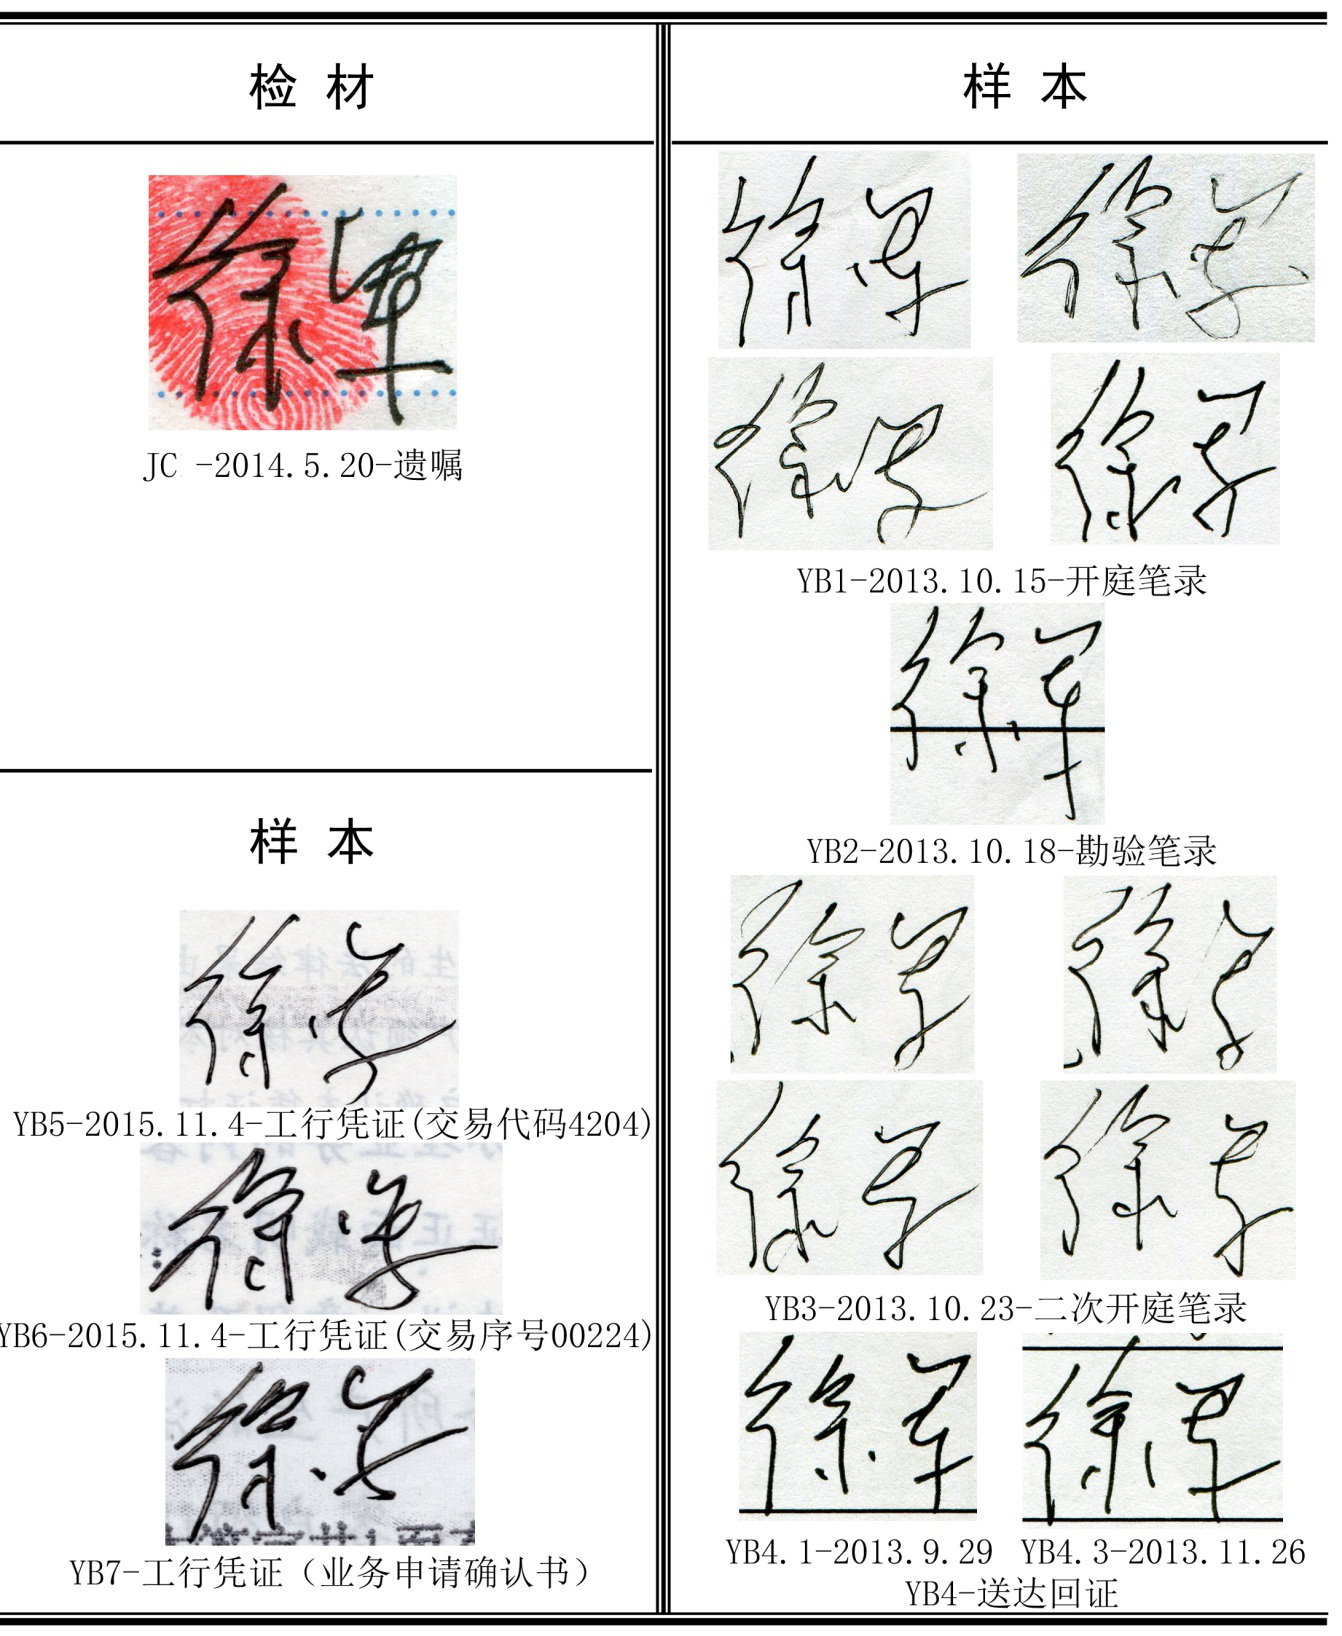 检 材
徐军
JC -2014.5.20-遗嘱
样 本
徐军
YB5-2015.11.4-工行凭证(交易代码4204)
徐军
YB6-2015.11.4-工行凭证(交易序号00224)
徐军
YB7-工行凭证（业务申请确认书）
样 本
徐军 徐军
徐军 徐军
YB1-2013.10.15-开庭笔录
徐军
YB2-2013.10.18-勘验笔录
徐军 徐军
徐军 徐军
YB3-2013.10.23-二次开庭笔录
徐军 徐军
YB4.1-2013.9.29 YB4.3-2013.11.26
YB4-送达回证